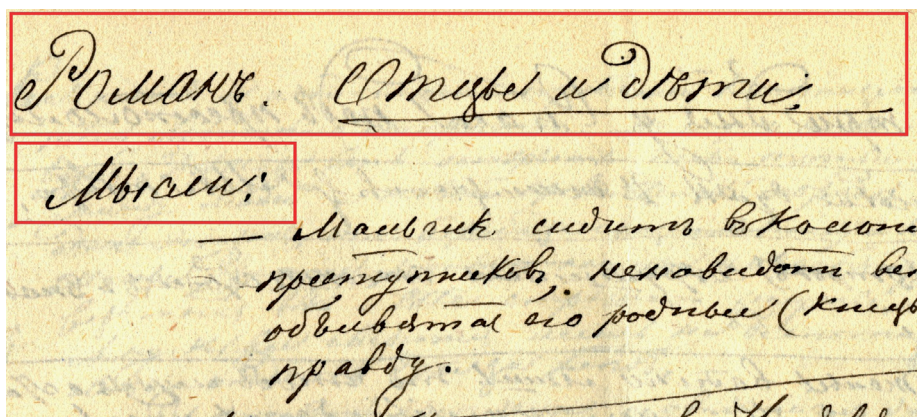 Романъ. Отцы и дѣти.
Мысли:
— Мальчик сидитъ въ колоні
преступниковъ, ненавидитъ ве
его родные (князь
правду.